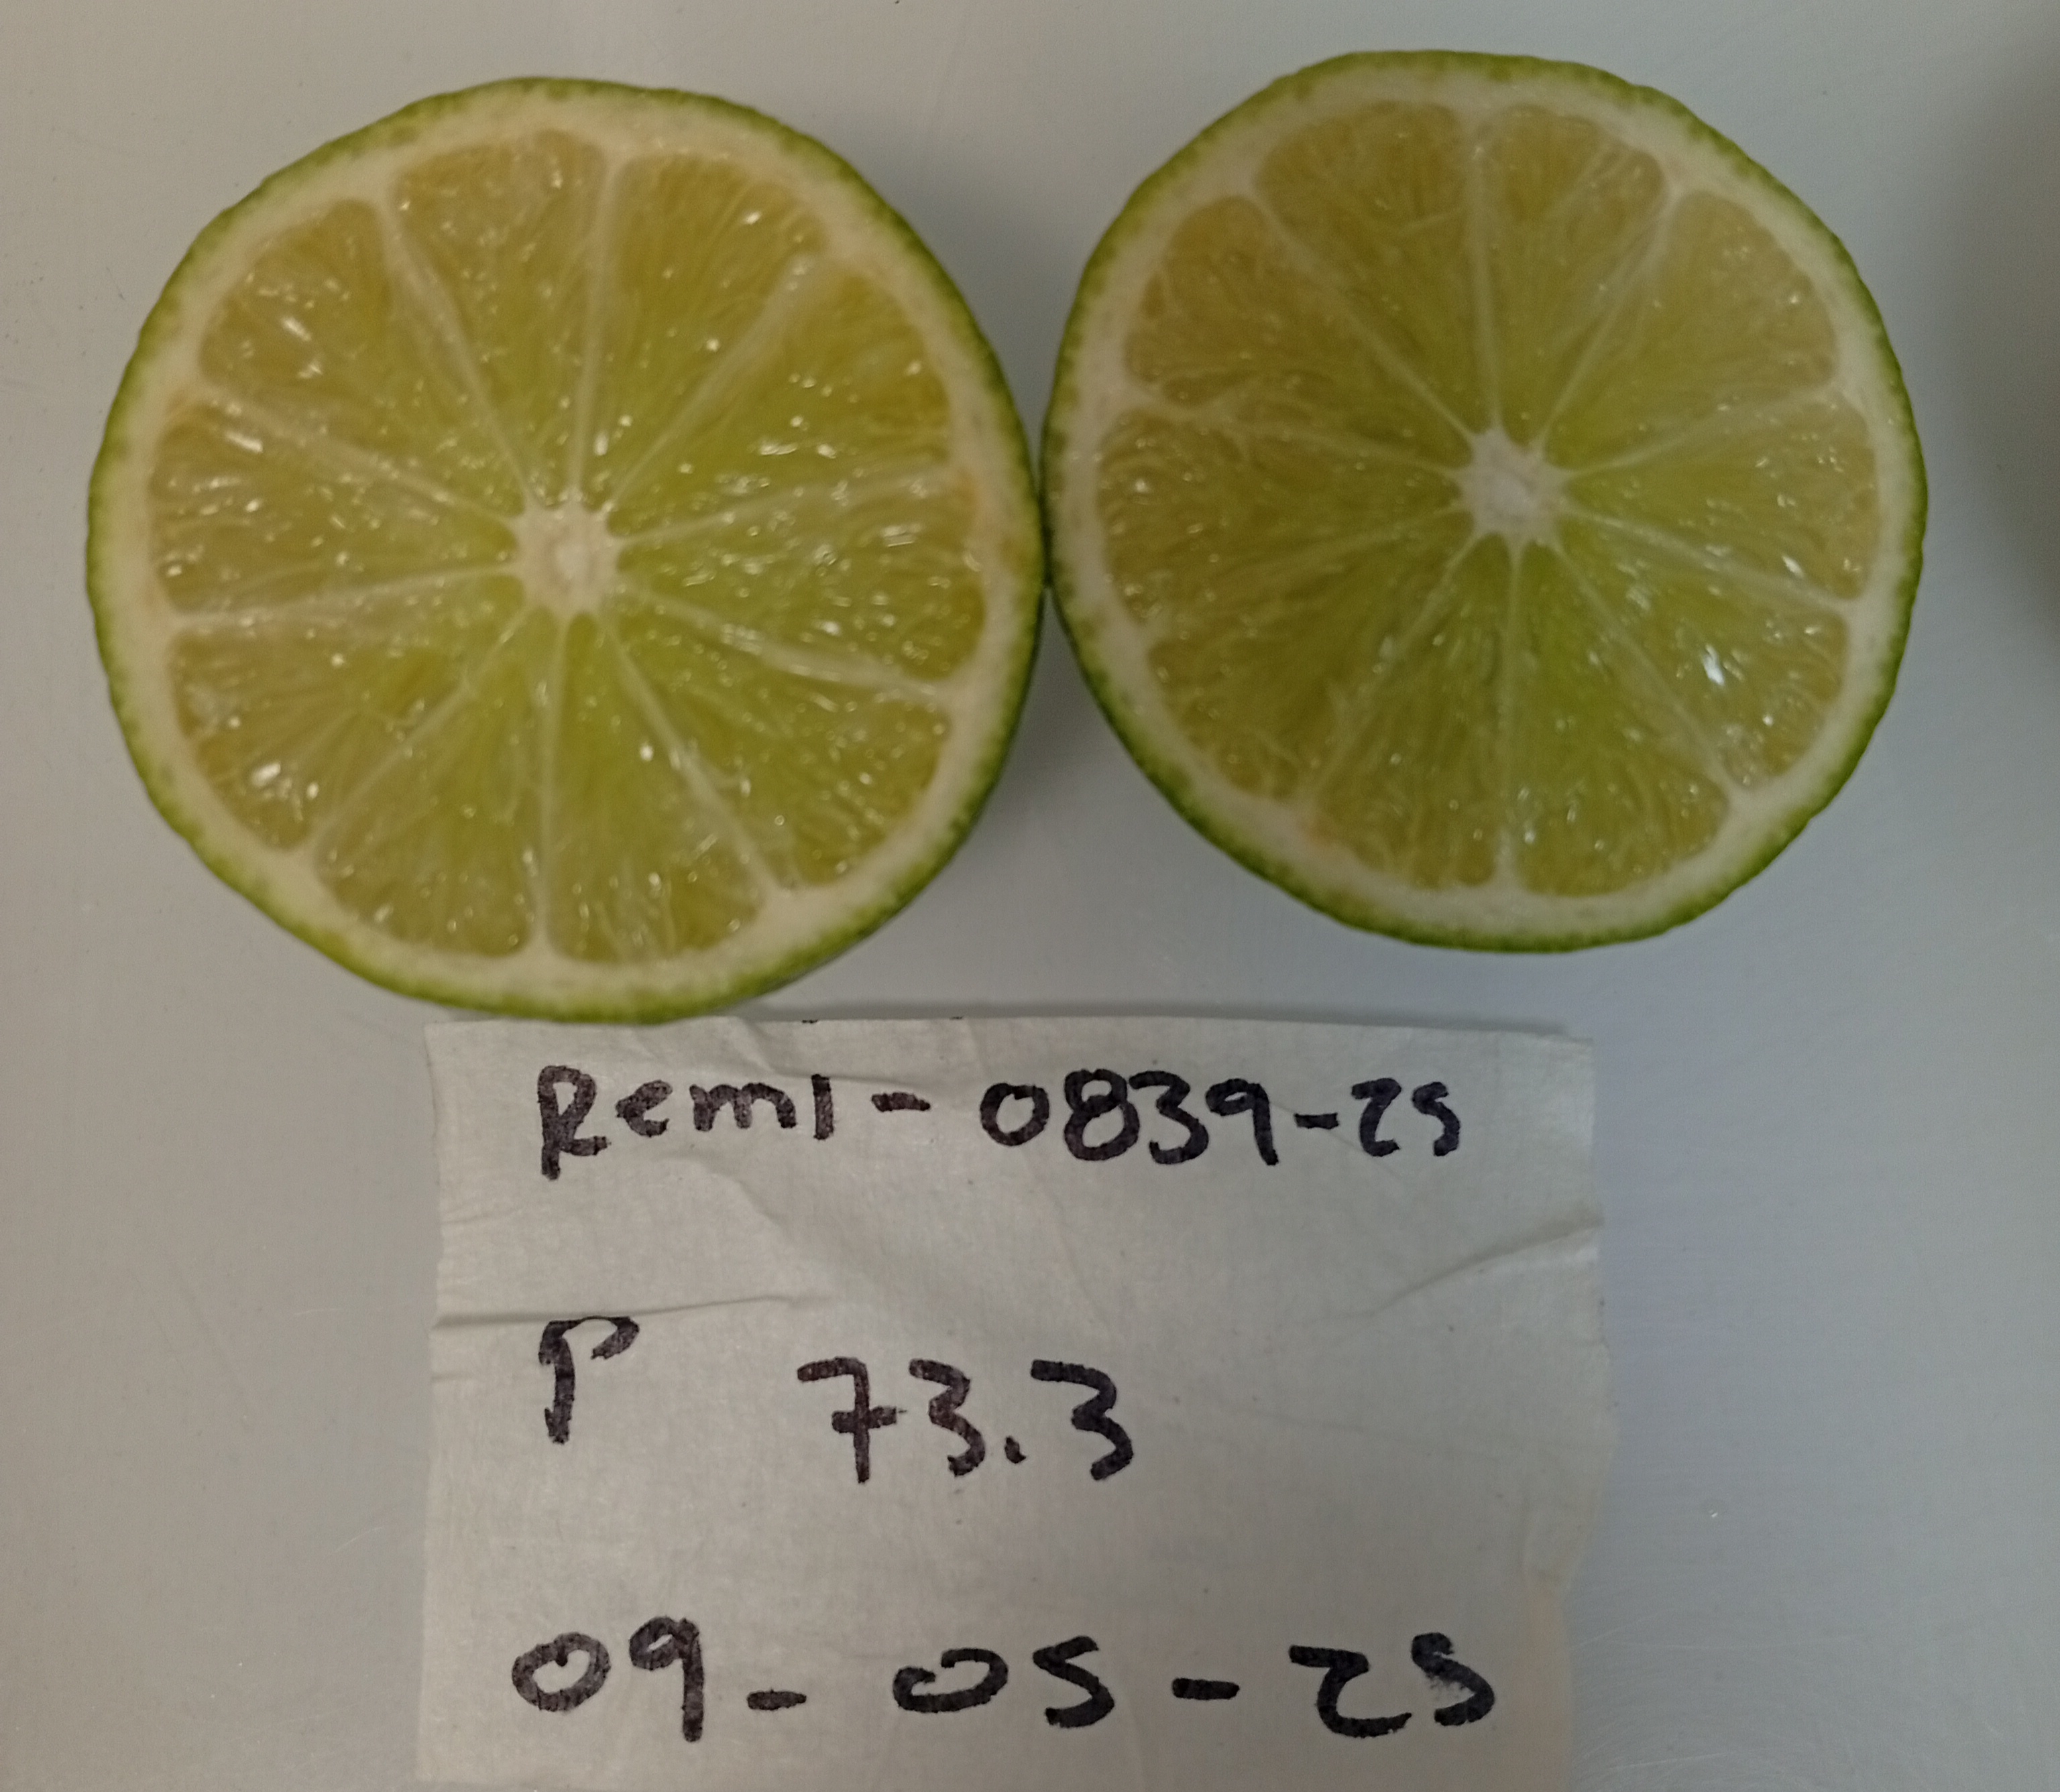 Reml-0839-25
P 73.3
09-05-25